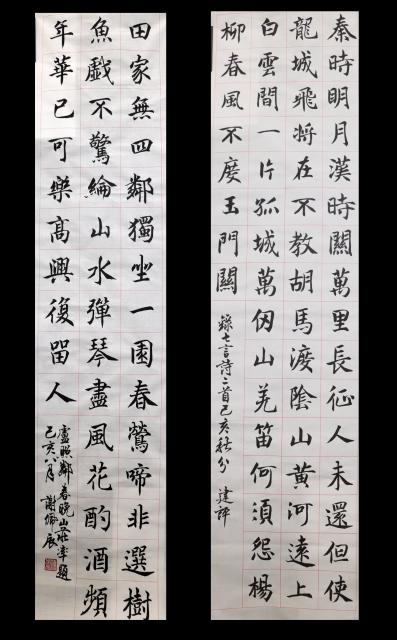 秦時明月漢時關萬里長征人未還但使
龍城飛將在不教胡馬渡陰山黃河遠上
白雲間一片孤城萬仞山羌笛何須怨楊
柳春風不度玉門關
錄七言詩二首己亥秋分 建評
田家無四鄰獨坐一園春鶯啼非選樹
魚戲不驚綸山水彈琴盡風花酌酒頻
年華已可樂高興復留人
盧照鄰春晚山莊率題
己亥八月 謝佩